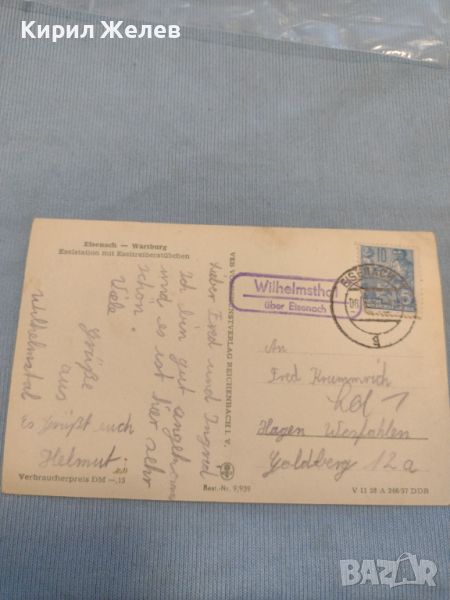 Кирил Желев
Eisenach — Wartburg
Eselstation mit Eseltreiberstübchen
Lieber Fred und Ingrid
Ich bin gut angekommen
und es ist hier sehr
schön.
Viele
Grüße
aus
Wilhelmstal
Es grüßt euch
Helmut.
Verbraucherpreis DM -,15
KUNSTVERLAG REICHENBACH I. V.
Best.-Nr. 9/939
Wilhelmsthal
über Eisenach
EISENACH
g
10
An
Fred Krummrich
Hagen Westfahlen
Goldberg 12a
V 11 28 A 266/57 DDR
BAZAR